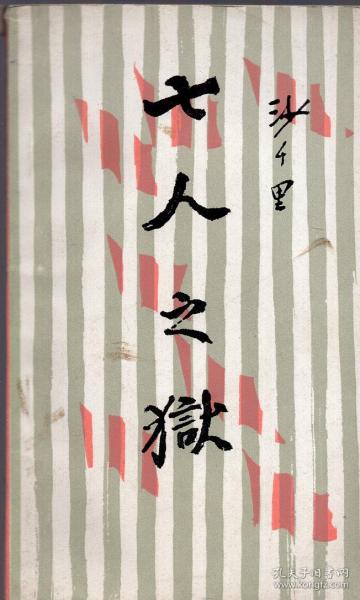 沙千里
七人之獄
孔夫子旧书网
www.kongfz.com